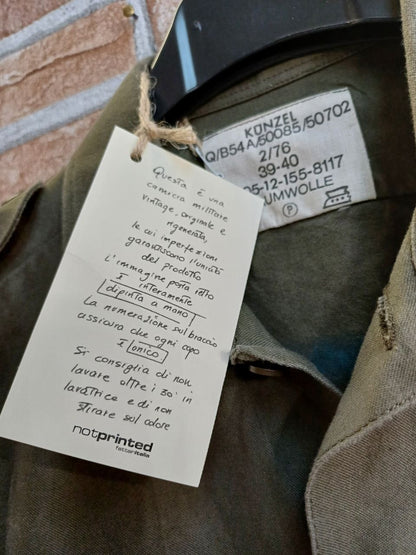 KÜNZEL
Q/B54A/50085/50702
2/76
39-40
05-12-155-8117
UMWOLLE
P
Questa è una
camicia militare
vintage, originale e
rigenerata,
le cui imperfezioni
garantiscono l'unicità
del prodotto
L'immagine posta retro
È interamente
dipinta a mano
La numerazione sul braccio
assicura che ogni capo
È unico
Si consiglia di non
lavare oltre i 30° in
lavatrice e di non
stirare sul colore
notprinted
fattoinitalia